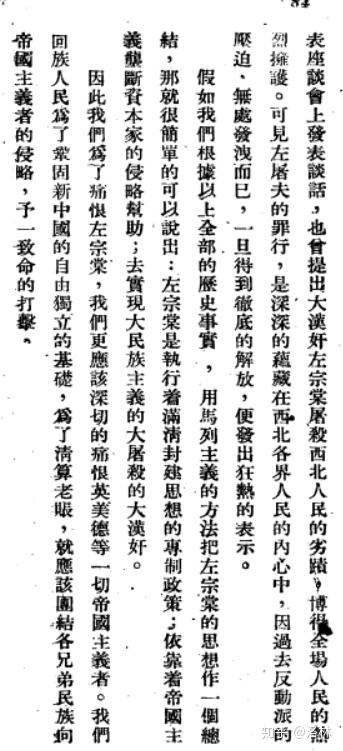 表座談會上發表談話，也曾提出大漢奸左宗棠屠殺西北人民的劣蹟，博得全場人民的熱
烈擁護。可見左屠夫的罪行，是深深的蘊藏在西北各界人民的內心中，因過去反動派的
壓迫、無處發洩而已，一旦得到徹底的解放，便發出狂熱的表示。
假如我們根據以上全部的歷史事實，用馬列主義的方法把左宗棠的思想作一個總
結，那就很簡單的可以說出：左宗棠是執行着滿清封建思想的專制政策；依靠着帝國主
義壟斷資本家的侵略幫助；去實現大民族主義的大屠殺的大漢奸。
因此我們爲了痛恨左宗棠，我們更應該深切的痛恨英美德等一切帝國主義者。我們
回族人民爲了鞏固新中國的自由獨立的基礎，爲了清算老賬，就應該團結各兄弟民族向
帝國主義者的侵略，予一致命的打擊。
知乎